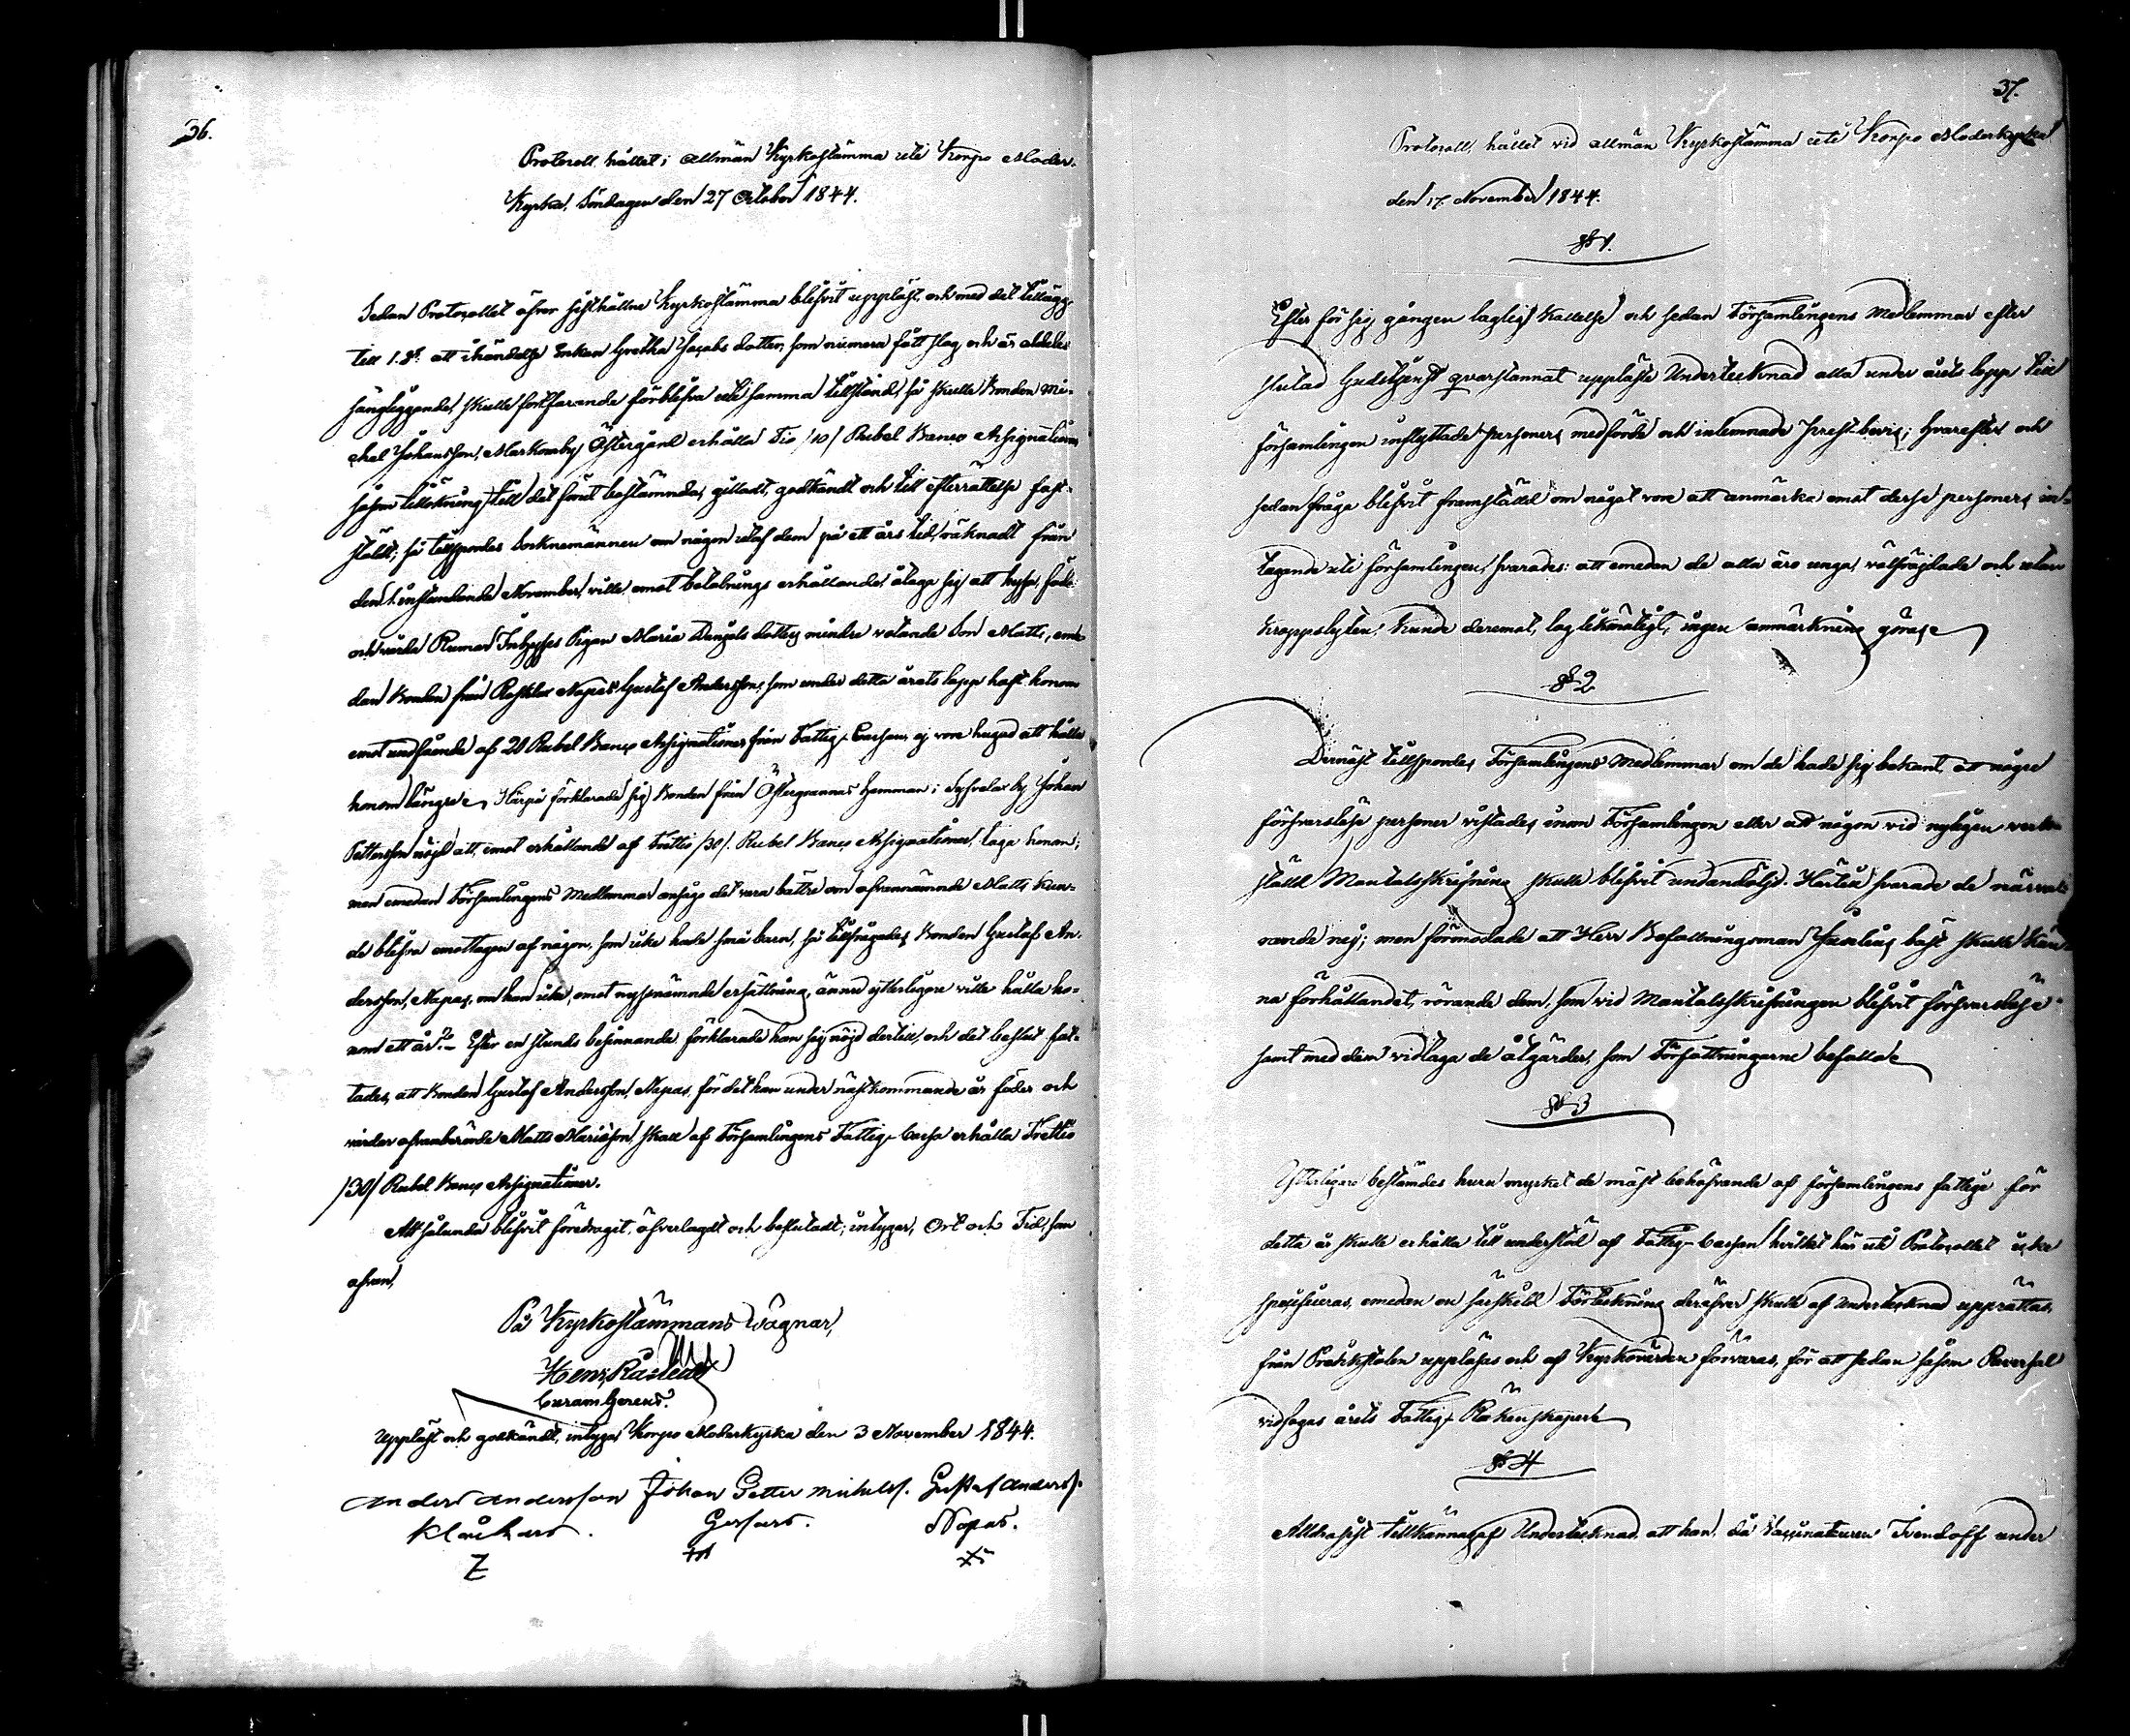 36.
Protocoll hållet i allmän Kyrkostämma uti Korpo Moder-
Kyrka, Söndagen den 27 October 1844.
Sedan Protocollet öfver sisthållne Kyrkostämma blifvit uppläst, och med det tillägg
till 1. §: att ihändelse Enkan Gretha Jacobs dotter, som numera fått slag och är aldeles
sängliggande, skulle fortfarande förblifva uti samma tillstånd, så skulle Bonden Mi-
chel Johansson, Markomby Östergård erhålla Tio /10/ Rubel Banco Assignationer
såsom tillökning till det förut bestämnda, gilladt, godkändt och till efterrättelse fast-
stäldt; så tillspordes Socknemännen om någon utaf dem på ett års tid, räknadt från
den 1. instundande November, ville emot betalnings erhållande, åtaga sig att hysa, föda
och vårda Rumar Inhyses Pigan Maria Daniels dotters mindre vetande Son Matts, eme-
dan Bonden från Rosklax Napas Gustaf Andersson, som under detta årets lopp haft honom
emot undfående af 20 Rubel Banco Assignationer från Fattig-Cassan, ej vore hugad att hålla
honom längre. Härpå förklarade sig Bonden från Östergrannas Hemman i Lyfvelax by Johan
Pettersson nöjd att, emot erhållande af Trettio /30/. Rubel Banco Assignationer, taga honom;
men emedan Församlingens Medlemmar ansågo det vara bättre om ofvannämnde Matts kun-
de blifva emottagen af någon, som icke hade små barn, så tillfrågades Bonden Gustaf An-
dersson, Napas, om han icke, emot nyssnämnde ersättning, ännu ytterligare ville hålla ho-
nom ett år? - Efter en stunds besinnande förklarade han sig nöjd dertill, och det beslut fat-
tades, att Bonden Gustaf Andersson, Napas, för det han under nästkommande år föder och
vårdar ofvanberörde Matts Mariason, skall af Församlingens Fattig-Cassa erhålla Trettio
/30/ Rubel Banco Assignationer.
Att sålunda blifvit föredragit, öfverlagdt och beslutadt; intygar, Ort och Tid, som
ofvan,
På Kyrkostämmans Vägnar,
Henr. Råstedt
Curam Gerens.
Uppläst och godkändt, intyga Korpo Moderkyrka den 3 November 1844.
Anders Andersson Johan Petter Michels. Gustaf Anderss.
Klåckars. Gersars. Napas.
37.
Protocoll, hållet vid allmän Kyrkostämma uti Korpo Moderkyrka
den 17. November 1844.
§ 1.
Efter för sig gången laglig Kallelse och sedan Församlingens Medlemmar efter
slutad Gudstjenst qvarstannat uppläste Undertecknad alla under årets lopp till
församlingen inflyttade personers medförde och inlemnade Prest-bevis; hvarefter och
sedan fråga blifvit framställd om något vore att anmärka emot desse personers in-
tagande uti församlingen, svarades: att emedan de alla äro unga, välfräjdade och utan
Kroppslyten, kunde deremot, lag likmätigt, ingen anmärkning göras
§ 2
Dernäst tillspordes Församlingens Medlemmar om de hade sig bekant att några
försvarslöse personer vistades inom Församlingen eller att någon vid nyligen verk-
ställd Mantalsskrifning skulle blifvit undandöljd. Härtill svarade de närva-
rande nej; men förmodade att Herr Befallningsman bäst skulle kän-
na förhållandet, rörande dem, som vid Mantalsskrifningen blifvit försvarslöse
samt med dem vidtaga de åtgärder, som Författningarne befalla
§ 3
Ytterligare bestämdes huru mycket de mäst behöfvande af församlingens fattige för
detta år skulle erhålla till understöd af Fattig-Cassan hvilket här uti Protocollet icke
specificeras, emedan en särskild Förteckning deröfver skulle af Undertecknad upprättas,
från Predikstolen uppläsas och af Kyrkovärden förvaras, för att sedan såsom Reversal
vidfogas årets Fattig-Räkenskaper
§ 4
Allrasist tillkännagaf Undertecknad, att han, då Vaccinateuren Ivendoff under